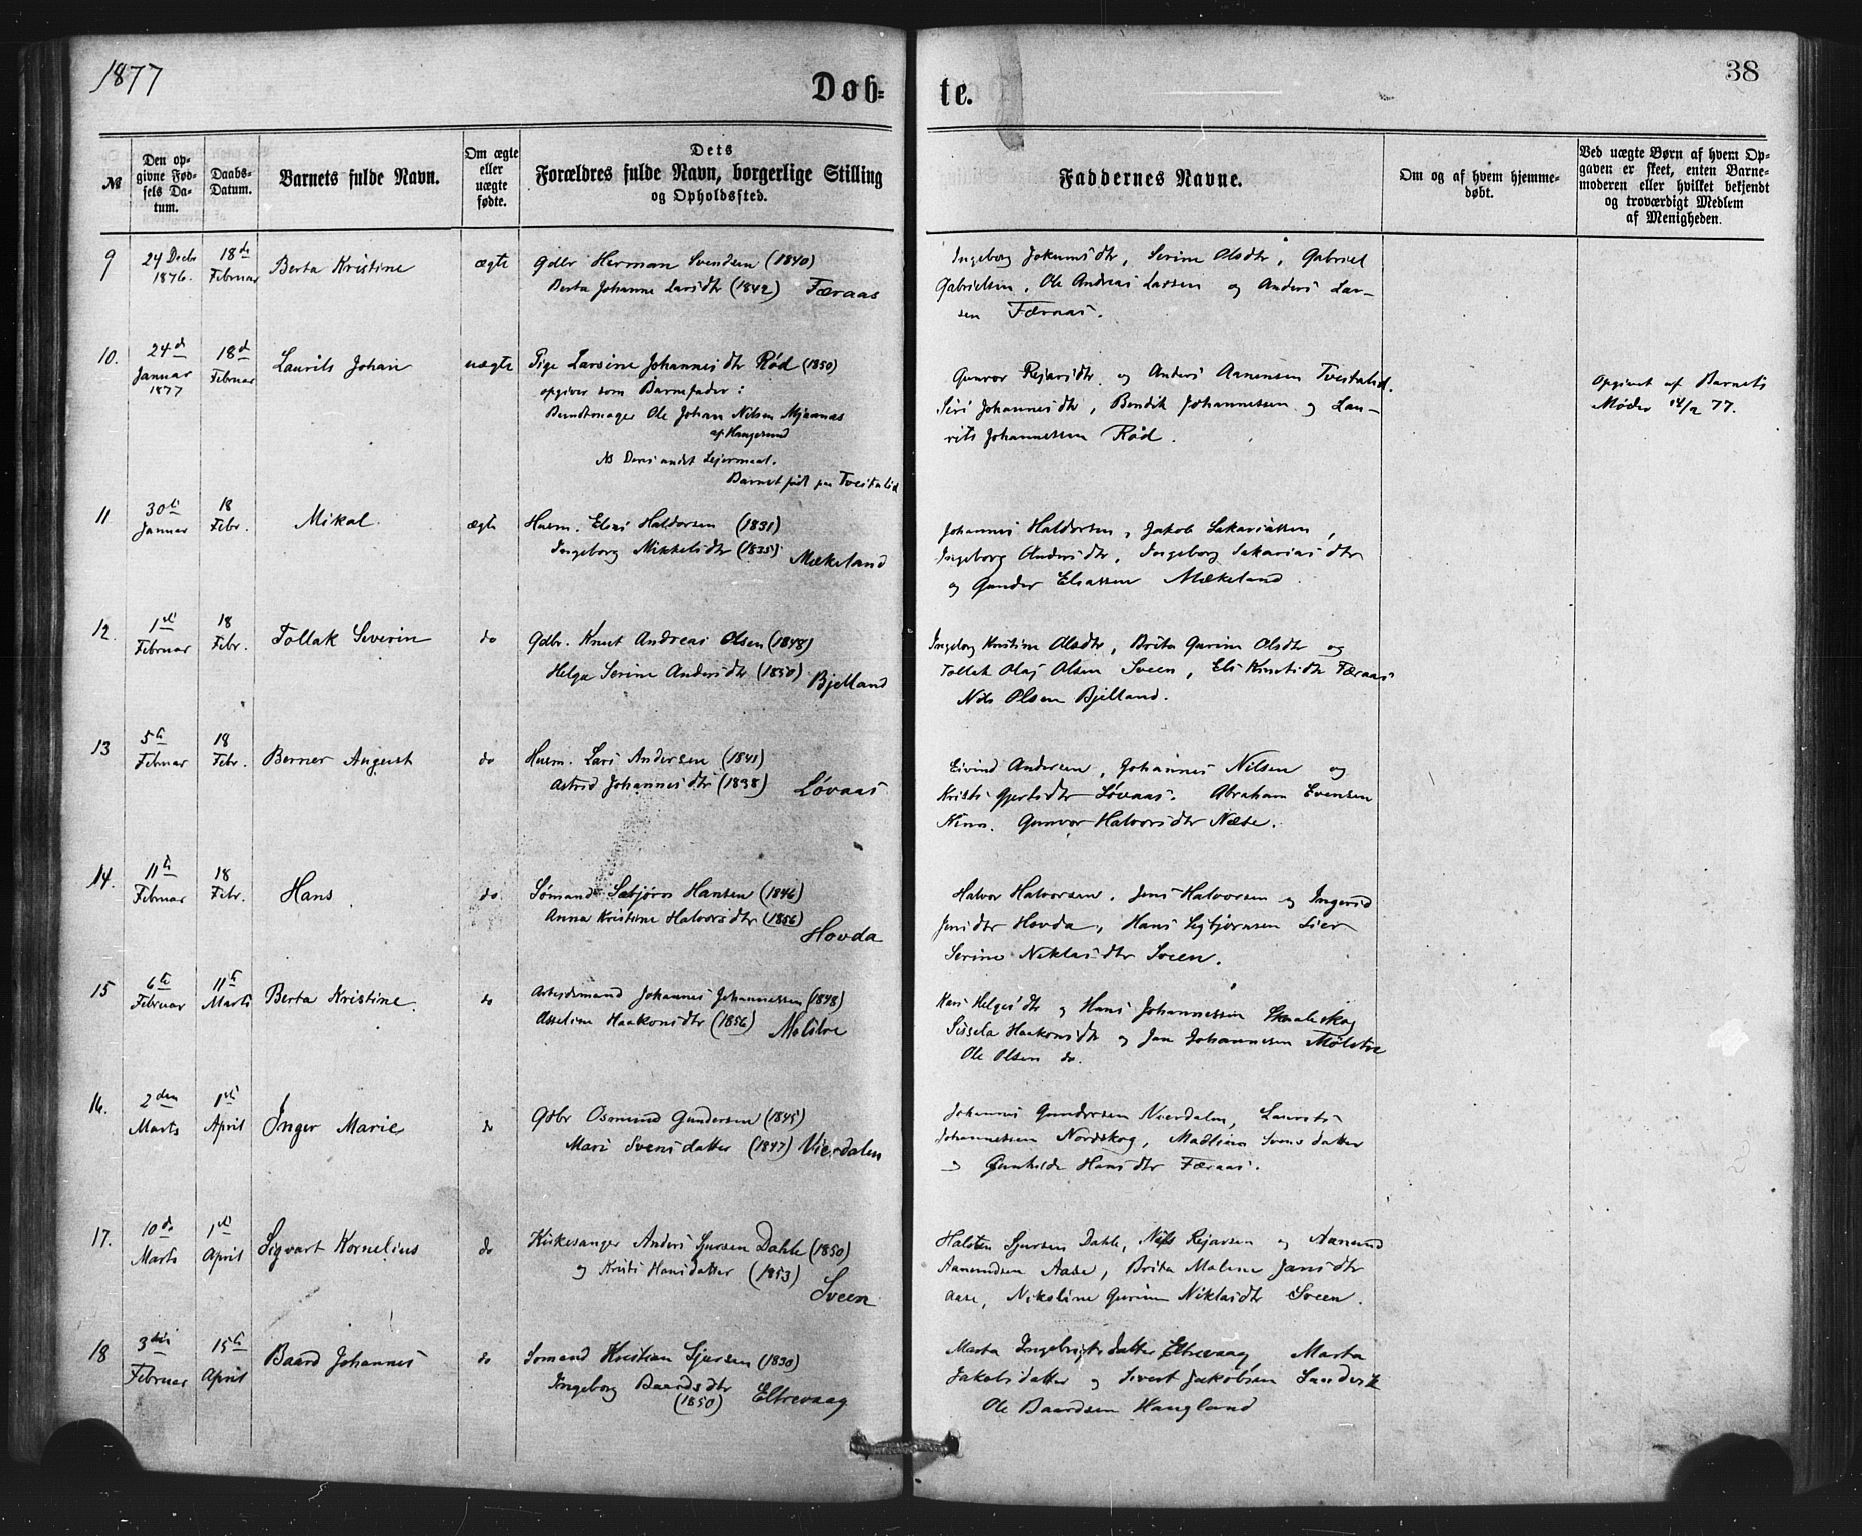 1877
Døb-
te.
38
№
Den op-
givne Fød-
sels Da-
tum.
Daabs-
Datum.
Barnets fulde Navn.
Om ægte
eller
uægte
fødte.
Dets
Forældres fulde Navn, borgerlige Stilling
og Opholdssted.
Faddernes Navne.
Om og af hvem hjemme-
døbt.
Ved uægte Børn af hvem Op-
gaven er skeet, enten Barne-
moderen eller hvilket bekjendt
og troværdigt Medlem
af Menigheden.
9
24 Decbr
1876.
18de
Februar
Berta Kristine
ægte
Gdbr Herman Svendsen (1840)
Berta Johanne Larsdtr (1842) Færaas
Ingeborg Jokumsdtr, Serine Olsdtr, Gabriel
Gabrielsen, Ole Andreas Larsen og Anders Lar-
sen Færaas.
10.
24d
Januar
1877
18d
Februar
Laurits Johan
uægte
Pige Larsine Johannesdtr Rød (1850)
opgiver som Barnefader:
Bundtmager Ole Johan Nilsen Mjaanas
af Haugesund
NB Deres andet Lejermaal.
Barnet født paa Tveitalid
Gunvor Rejarsdtr. og Anders Aanensen Tveitalid.
Siri Johannesdtr, Bendik Johannessen og Lau-
rits Johannessen Rød.
Opgivet af Barnets
Moder 14/2 77.
11
30te
Januar
18
Febr.
Mikal
ægte
Husm. Elias Haldorsen (1831)
Ingeborg Nikkelsdtr (1835) Mækeland
Johannes Haldorsen, Jakob Sakariassen,
Ingeborg Andersdtr, Ingeborg Sakariasdtr
og Gunder Eliassen Mækeland.
12.
1ste
Februar
18
Febr.
Tollak Severin
do
Gdbr. Knut Andreas Olsen (1848)
Helga Serine Andersdtr (1850) Bjelland
Ingeborg Kristine Olsdtr, Brita Gurine Olsdtr og
Tollak Olaj Olsen Sveen, Eli Knutsdtr Færaas
Nils Olsen Bjelland.
13
5te
Februar
18
Febr.
Berner August
do
Husm. Lars Andersen (1841)
Astrid Johannesdtr (1838) Løvaas
Eivind Andersen, Johannes Nilsen og
Kristi Gjertsdtr Løvaas. Abraham Evensen
Gunvor Halvorsdtr Næse.
14.
11te
Februar
18
Febr.
Hans
do.
Sømand Sebjørn Hansen (1846)
Anna Kristine Halvorsdtr (1856)
Hovda
Halvor Halvorsen, Jens Halvorsen og Ingerid
Jensdtr Hovda, Hans Sebjørnsen Lier
Serine Niklasdtr Sveen.
15
6te
Februar
11te
Marts
Berta Kristine.
do
Arbejdsmand Johannes Johannessen (1848)
Asseline Haakonsdtr (1856) Molstre
Kari Helgesdtr og Hans Johannessen Skaaleskog
Sissela Haakonsdtr og Jan Johannesen Mølstre
Ole Olsen do.
16.
2den
Marts
1ste
April
Inger Marie
do
Gdbr Osmund Gundersen (1845)
Mari Svensdatter (1847) Vierdalen
Johannes Gundersen Vierdalen, Laurits
Johannessen Nordskog, Madliene Svensdatter
og Gunhilde Hansdtr Færaas.
17.
10de
Marts
1ste
April
Sigvart Kornelius
do
Kirkesanger Anders Sjursen Dahle (1850)
og Kristi Hansdatter (1853)
Sveen
Halsten Sjursen Dahle, Nils Rejarsen og Aamund
Aamundsen Aase, Brita Malene Jansdtr
Aase, Nikoline Gurine Niklasdtr Sveen.
18
3die
Februar
15te
April
Baard Johannes
do
Sømand Kristian Sjursen (1830)
Ingeborg Baardsdtr
(1850) Eltrevaag
Marta Ingebrigtsdatter Eltrevaag Marta
Jakobsdatter og Sivert Jakobsen Sandvik
Ole Baardsen Haugland